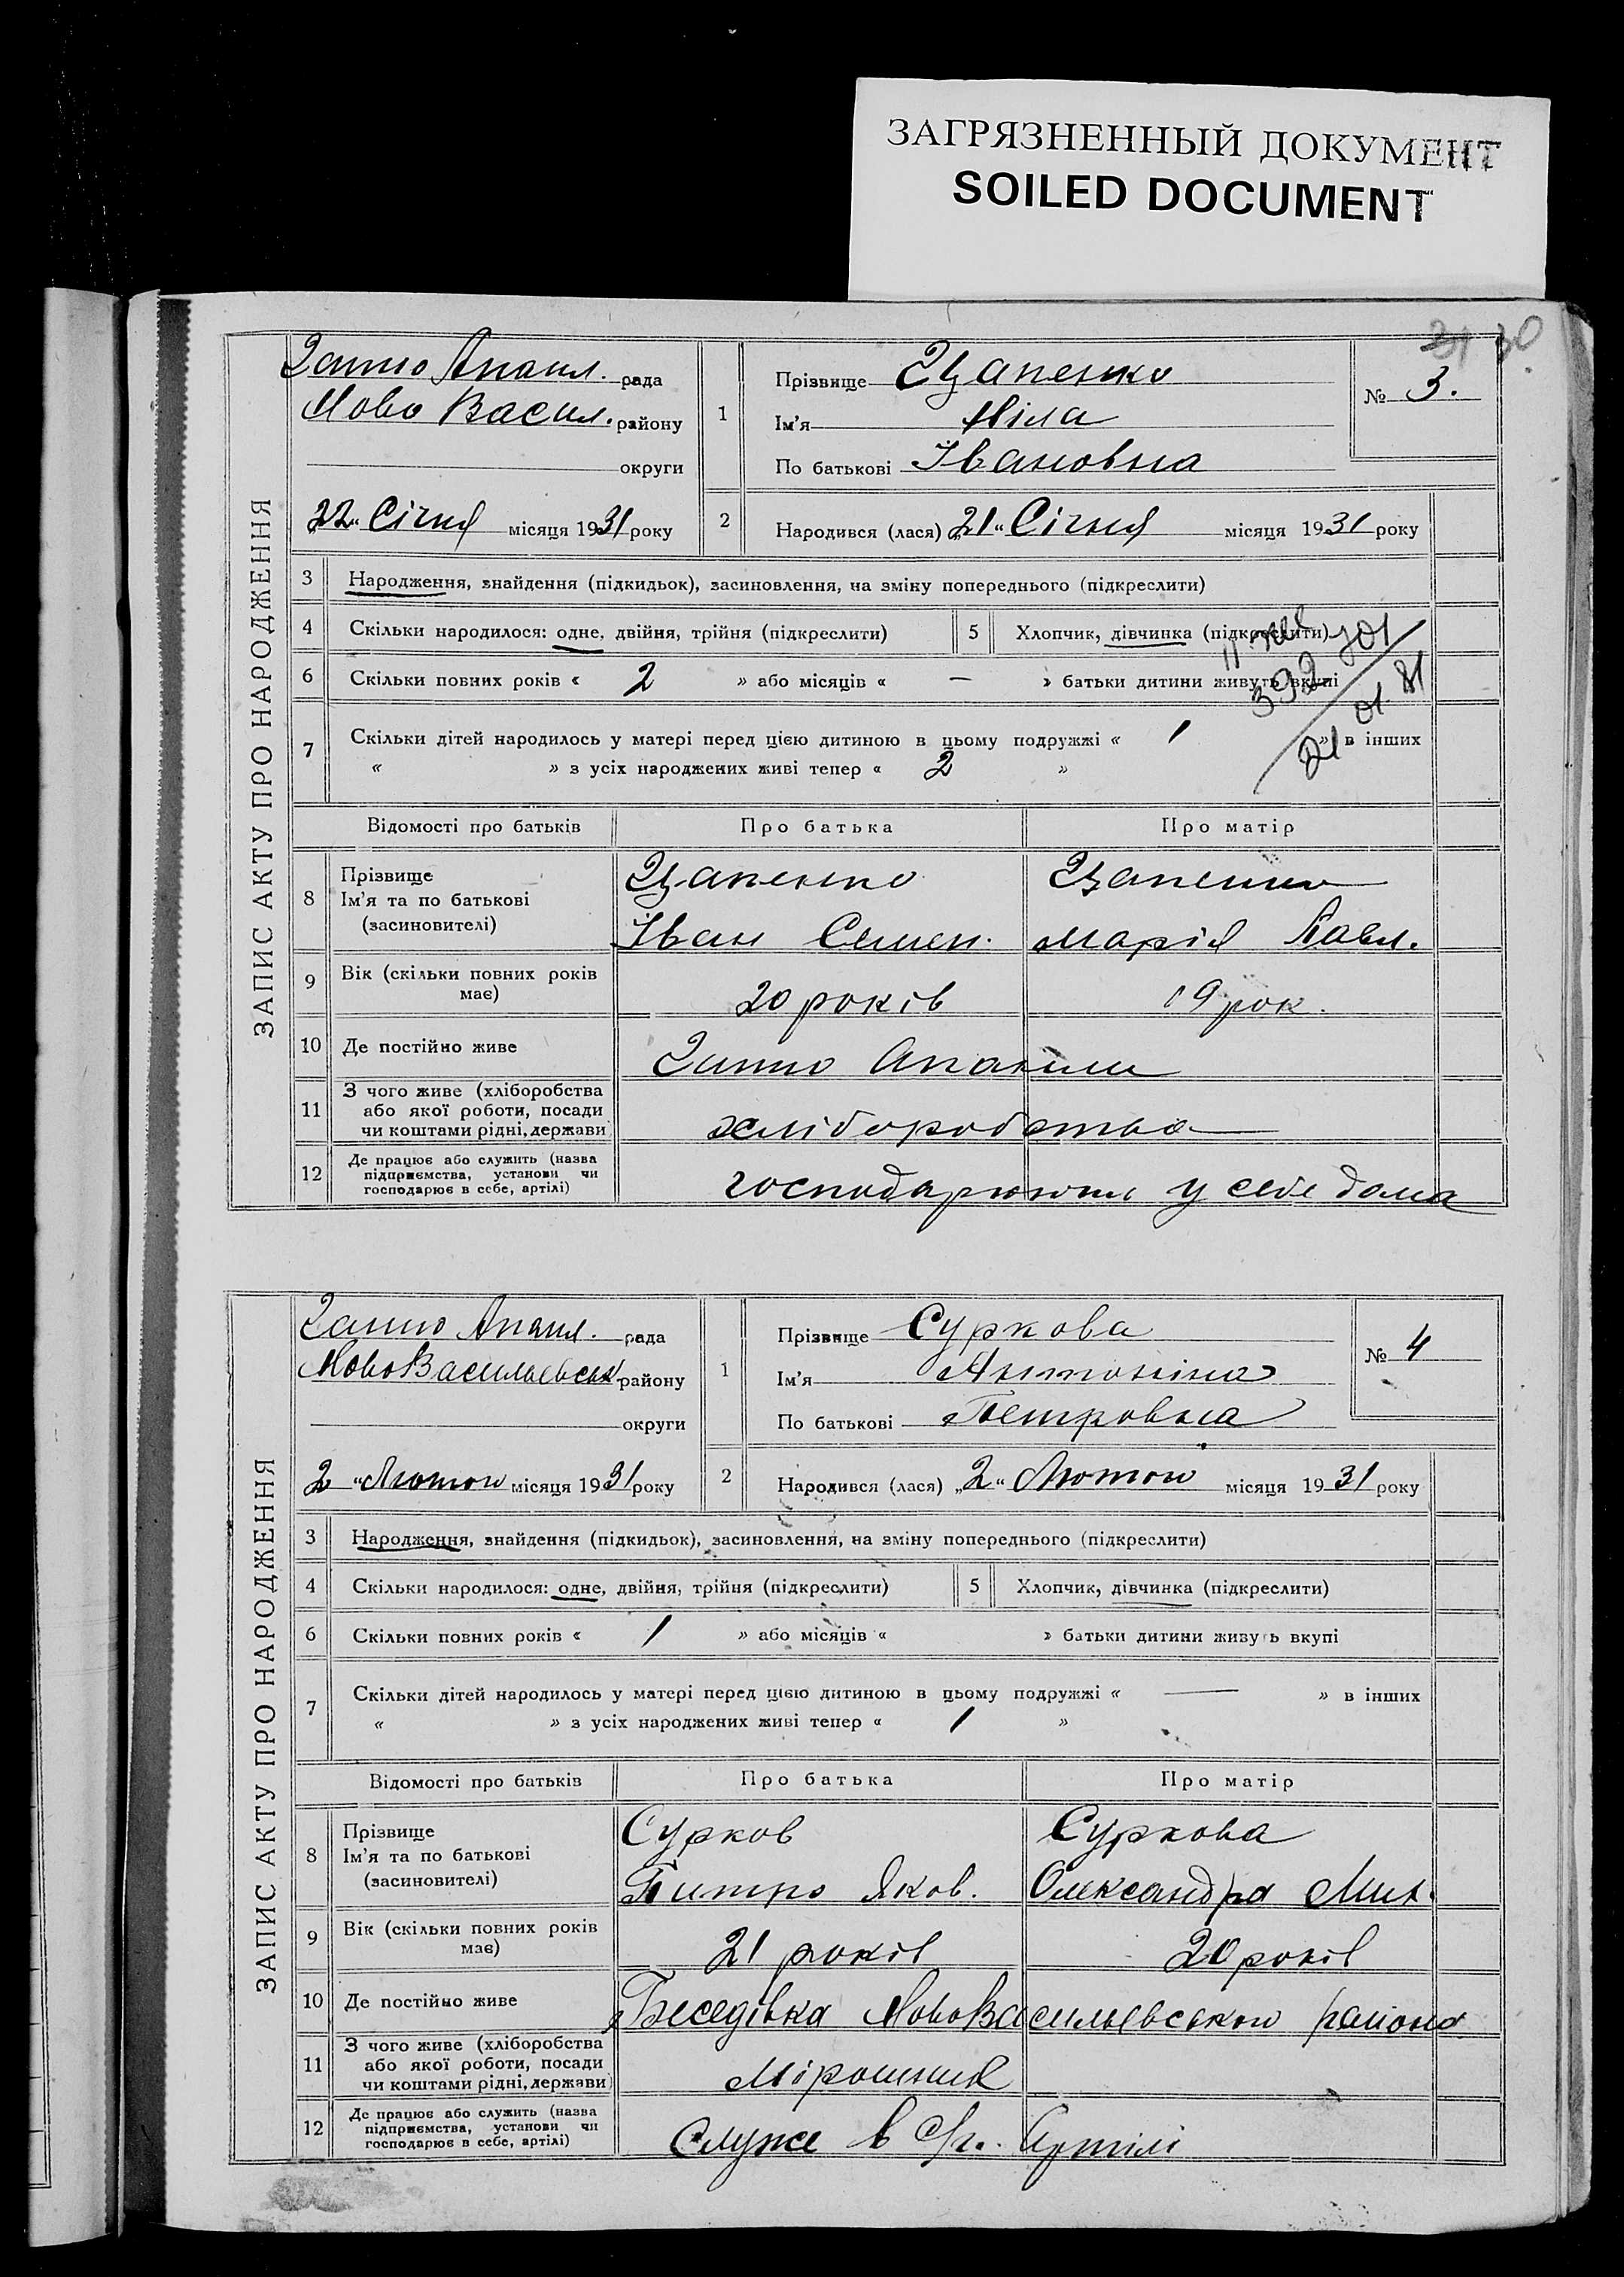 ЗАГРЯЗНЕННЫЙ ДОКУМЕНТ
SOILED DOCUMENT
31 30
ЗАПИС АКТУ ПРО НАРОДЖЕННЯ
рада
Ново Васил. району
округи
22 " Січня місяця 1931 року
1 Прізвище Цапенко
Ім'я Ніла
По батькові Івановна
№ 3.
2 Народився (лася) „21" Січня місяця 1931 року
3 Народження, знайдення (підкидьок), засиновлення, на зміну попереднього (підкреслити)
4 Скільки народилося: одне, двійня, трійня (підкреслити) 5 Хлопчик, дівчинка (підкреслити)
6 Скільки повних років « 2 » або місяців « — » батьки дитини живуть вкупі
7 Скільки дітей народилось у матері перед цією дитиною в цьому подружжі « 1 » в інших
« » з усіх народжених живі тепер « 2 »
392 701
21 01 81
Відомості про батьків Про батька Про матір
8 Прізвище
Ім'я та по батькові
(засновителі)
Цапенко Цапенко
Іван Семен. Марія Павл.
9 Вік (скільки повних років
має)
20 років 19 рок.
10 Де постійно живе
11 З чого живе (хліборобства
або якої роботи, посади
чи коштами рідні, держави
хліборобства
12 Де працює або служить (назва
підприємства, установи чи
господарює в себе, артілі)
господарюють у себе дома
ЗАПИС АКТУ ПРО НАРОДЖЕННЯ
рада
НовоВасильевськ району
округи
2 " Лютого місяця 1931 року
1 Прізвище Суркова
Ім'я Антоніна
По батькові Петровна
№ 4
2 Народився (лася) „2" Лютого місяця 1931 року
3 Народження, знайдення (підкидьок), засиновлення, на зміну попереднього (підкреслити)
4 Скільки народилося: одне, двійня, трійня (підкреслити) 5 Хлопчик, дівчинка (підкреслити)
6 Скільки повних років « 1 » або місяців « » батьки дитини живуть вкупі
7 Скільки дітей народилось у матері перед цією дитиною в цьому подружжі « — » в інших
« » з усіх народжених живі тепер « 1 »
Відомості про батьків Про батька Про матір
8 Прізвище
Ім'я та по батькові
(засиновителі)
Сурков Суркова
Питро Яков. Олександра Мих.
9 Вік (скільки повних років
має)
21 років 20 років
10 Де постійно живе
Беседівка НовоВасильевського района
11 З чого живе (хліборобства
або якої роботи, посади
чи коштами рідні, держави)
Мірошник
12 Де працює або служить (назва
підприємства, установи чи
господарює в себе, артілі)
Служе в с/г. Артілі